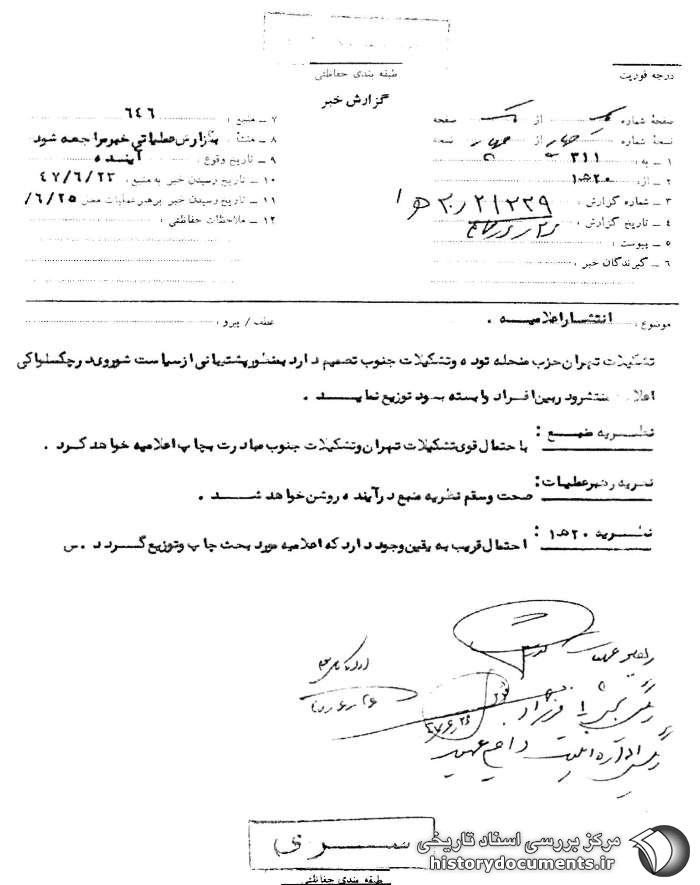 درجه فوریت
طبقه بندی حفاظتی
گزارش خبر
صفحهٔ شماره یک از یک صفحه
نسخهٔ شماره چهار از چهار نسخه
۱ ــ به : ۳۱۱
۲ ــ از: ۲۰ ه ۱
۳ ــ شماره گزارش : ۲۱۲۳۹ / ۲۰ ه ۱
۴ ــ تاریخ گزارش :
۵ ــ پیوست :
۶ ــ گیرندگان خبر :
۷ ــ منبع : ۶۴۶
۸ ــ منشأ : بگزارش عملیاتی خبر مراجعه شود
۹ ــ تاریخ وقوع : آینده
۱۰ ــ تاریخ رسیدن خبر به منبع : ۴۷/۶/۲۳
۱۱ ــ تاریخ رسیدن خبر برهبر عملیات ۶/۲۵/
۱۲ ــ ملاحظات حفاظتی :
موضوع : انتشار اعلامیه .
عطف / پیرو :
تشکیلات تهران حزب منحله توده و تشکیلات جنوب تصمیم دارد بمنظور پشتیبانی از سیاست شوروی در چکسلواکی
منتشر و در بین افراد وابسته بخود توزیع نمایند .
نظریه منبع : با احتمال قوی تشکیلات تهران و تشکیلات جنوب مبادرت بچاپ اعلامیه خواهد کرد .
نظریه رهبر عملیات: صحت و سقم نظریه منبع در آینده روشن خواهد شد .
نظریه ۲۰ ه ۱ : احتمال قریب به یقین وجود دارد که اعلامیه مورد بحث چاپ و توزیع گردد . س
رهبر عملیات
رئیس بخش ۱ فرزاد
رئیس اداره امنیت داخلی
۴۷/۶/۲۶
سری
طبقه بندی حفاظتی
مرکز بررسی اسناد تاریخی
historydocuments.ir